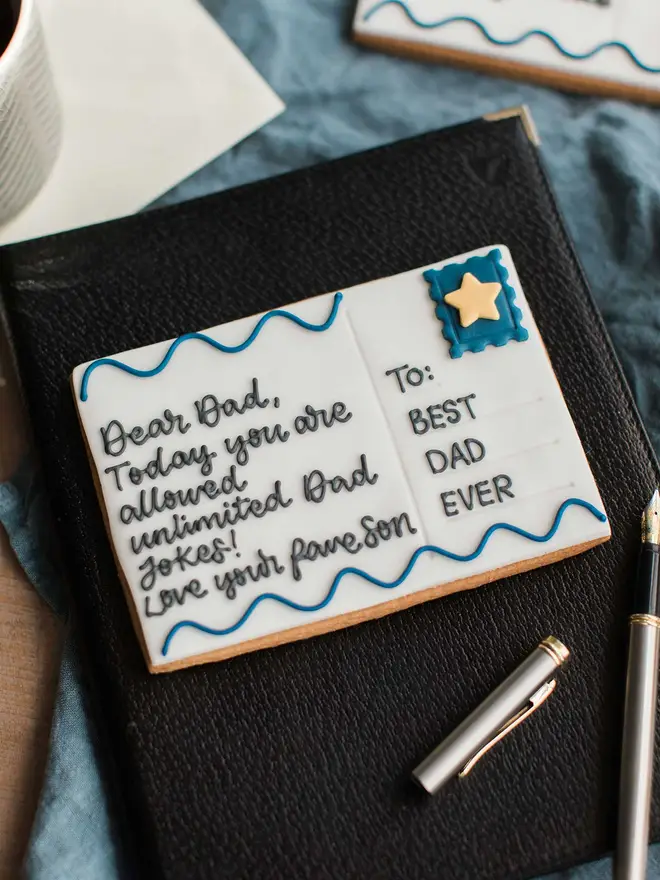 Dear Dad,
Today you are
allowed
unlimited Dad
Jokes!
Love your fave Son
To:
BEST
DAD
EVER